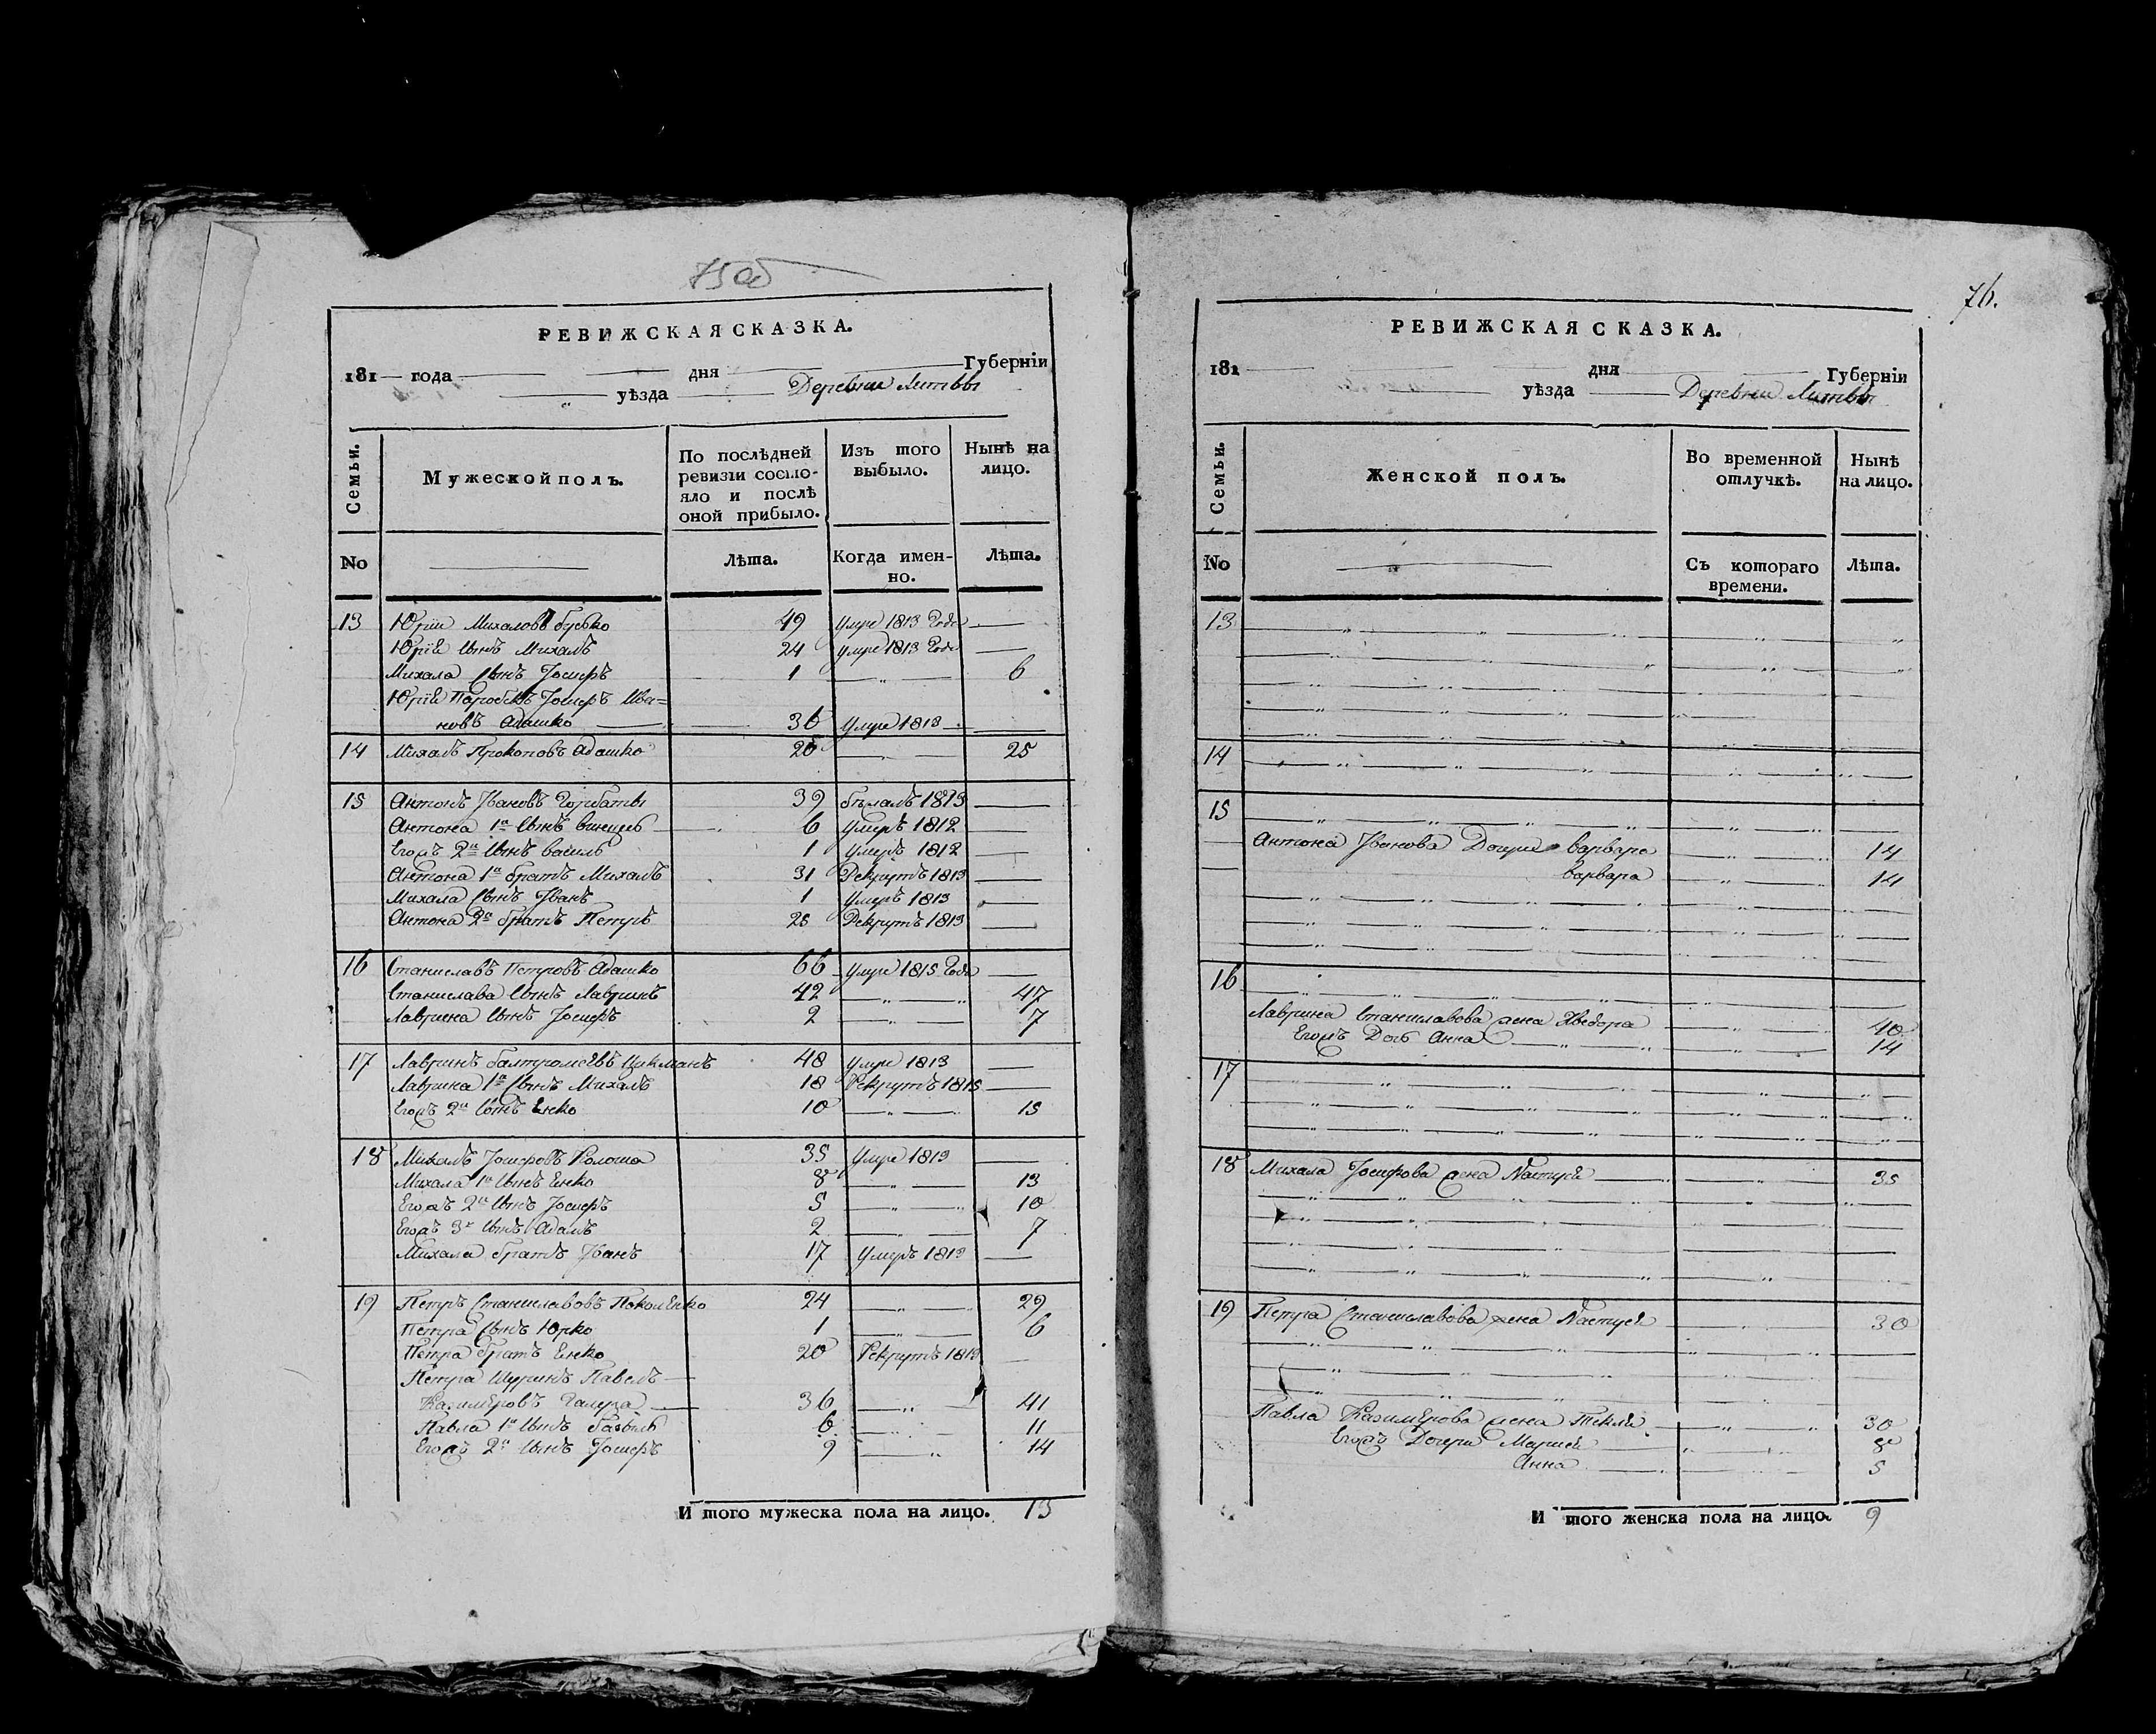 75об
РЕВИЖСКАЯ СКАЗКА.
181 года дня Губерніи
уѣзда Деревни Литвы
Семьи.
Мужеской полъ.
По послѣдней ревизіи состо-
яло и послѣ
оной прибыло.
Изъ того
выбыло.
Нынѣ на
лицо.
No
Лѣта.
Когда имен-
но.
Лѣта.
13 Юріи Михаловъ 49 умре 1813 Года
Юріе Сынъ Михалъ 24 умре 1813 Года
Михала Сынъ Іосифъ 1 6
Юріе Паробокъ Іосифъ Ива=
новъ Адашко 36 умре 1813
14 Михалъ Прокоповъ Адашко 20 25
15 Антонъ Івановъ Горбаты 39 бѣгалъ 1813
Антона 1й Сынъ винцеь 6 умеръ 1812
Егожъ 2й Сынъ василь 1 умеръ 1812
Антона 1й братъ Михалъ 31 Рекрутъ 1813
Михала Сынъ Іванъ 1 умеръ 1813
Антона 2й братъ Петръ 28 Рекрутъ 1813
16 Станиславъ Петровъ Адашко 66 умре 1815 Года
Станислава Сынъ Лавринъ 42 47
Лаврина Сынъ Іосифъ 2 7
17 Лавринъ балтромеевъ Цикманъ 48 умре 1813
Лаврина 1й Сынъ Михалъ 18 Рекрутъ 1815
Егожъ 2й Сынъ Енко 10 15
18 Михалъ Іосифовъ Колоша 35 Умре 1813
Михала 1й Сынъ Енко 8 13
Егожъ 2й Сынъ Іосифъ 5 10
Егожъ 3й Сынъ Адамъ 2 7
Михала братъ Іванъ 17 умеръ 1813
19 Петръ Станиславовъ 24 29
Петра Сынъ Юрко 1 6
Петра братъ Енко 20 Рекрутъ 1813
Петра Шуринъ Павелъ
Казимеровъ Галера 36 41
Павла 1й Сынъ базыль 6 11
Егожъ 2й Сынъ Іосифъ 9 14
И того мужеска пола на лицо. 13
76.
РЕВИЖСКАЯ СКАЗКА.
181 дня Губерніи
уѣзда Деревни Литвы
Семьи.
Женской полъ.
Во временной
отлучкѣ.
Нынѣ
на лицо.
No
Съ котораго
времени.
Лѣта.
13
14
15
Антона Іванова Дочери варвара 14
варвара 14
16
Лаврина Станиславова жена Хведора 40
Егожъ Дочь Анна 14
17
18 Михала Іосифова жена Настуся 35
19 Петра Станиславова жена Настуся 30
Павла Казимерова жена Текля 30
Егожъ Дочери Марися 8
Анна 5
И того женска пола на лицо. 9